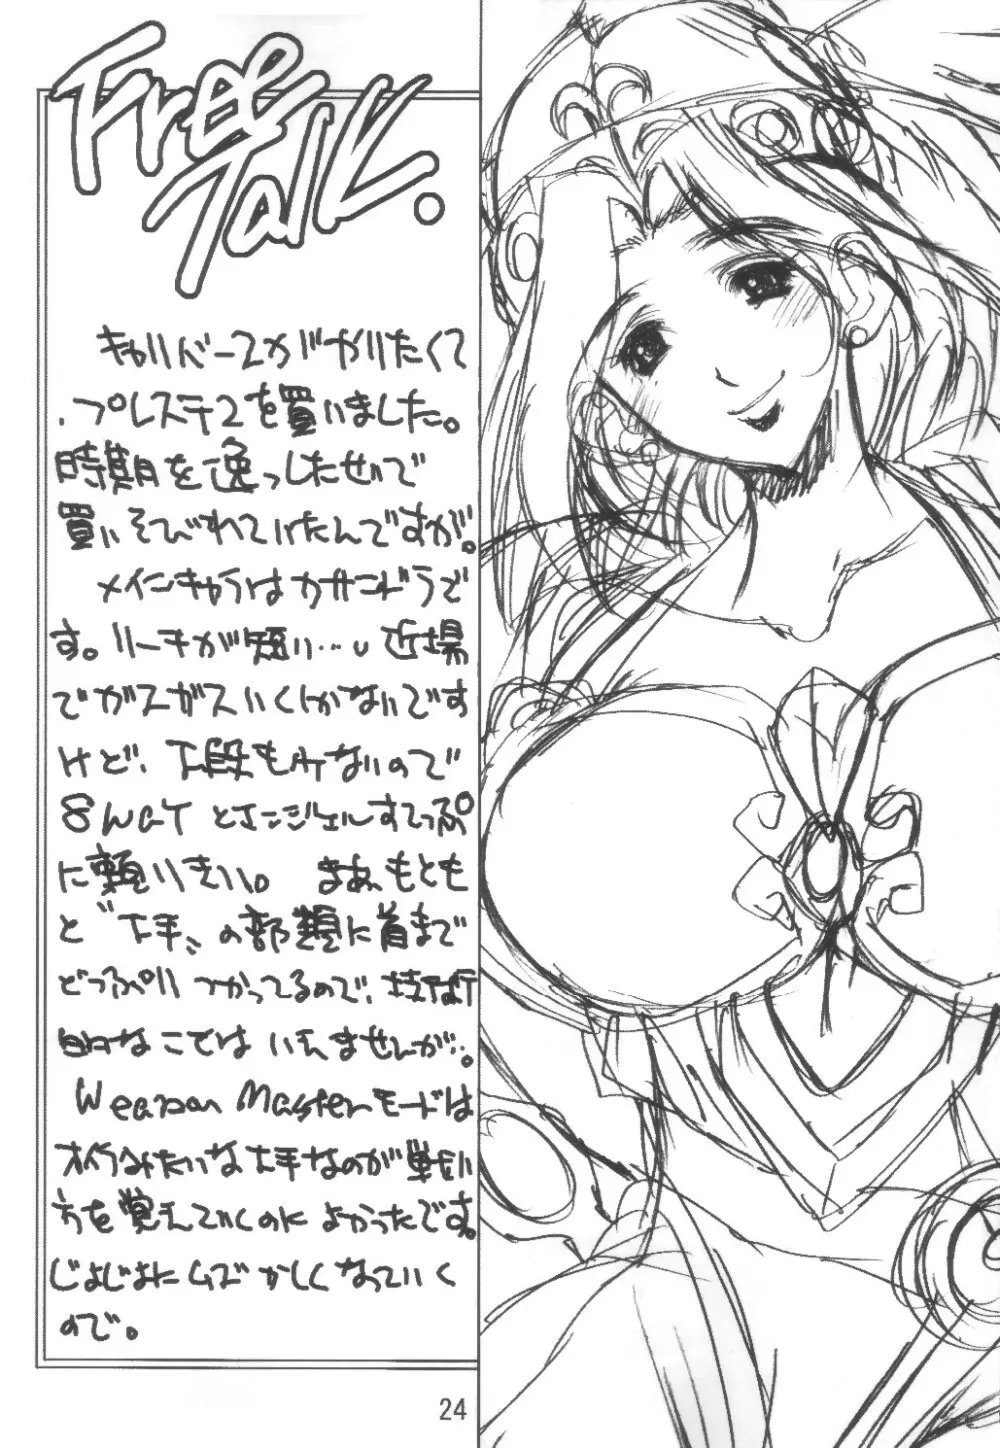 Free
Talk.
キャリバー2がやりたくて
、プレステ2を買いました。
時期を逸っしたせいで
買いそびれていたんですが。
メインキャラはカサンドラで
す。リーチが短い…。近場
でガスガスいくしかないです
けど、下段もみないので
8wayとエンジェルすてっぷ
に頼りきり。まあ、もともと
と〝下手〟の部類に首まで
どっぷりつかってるので、技術
的なことではいえませんが…。
Weapon Masterモードは
オイラみたいな下手なのが戦い
方を覚えていくのによかったです。
じょじょにムズかしくなっていく
ので。
24